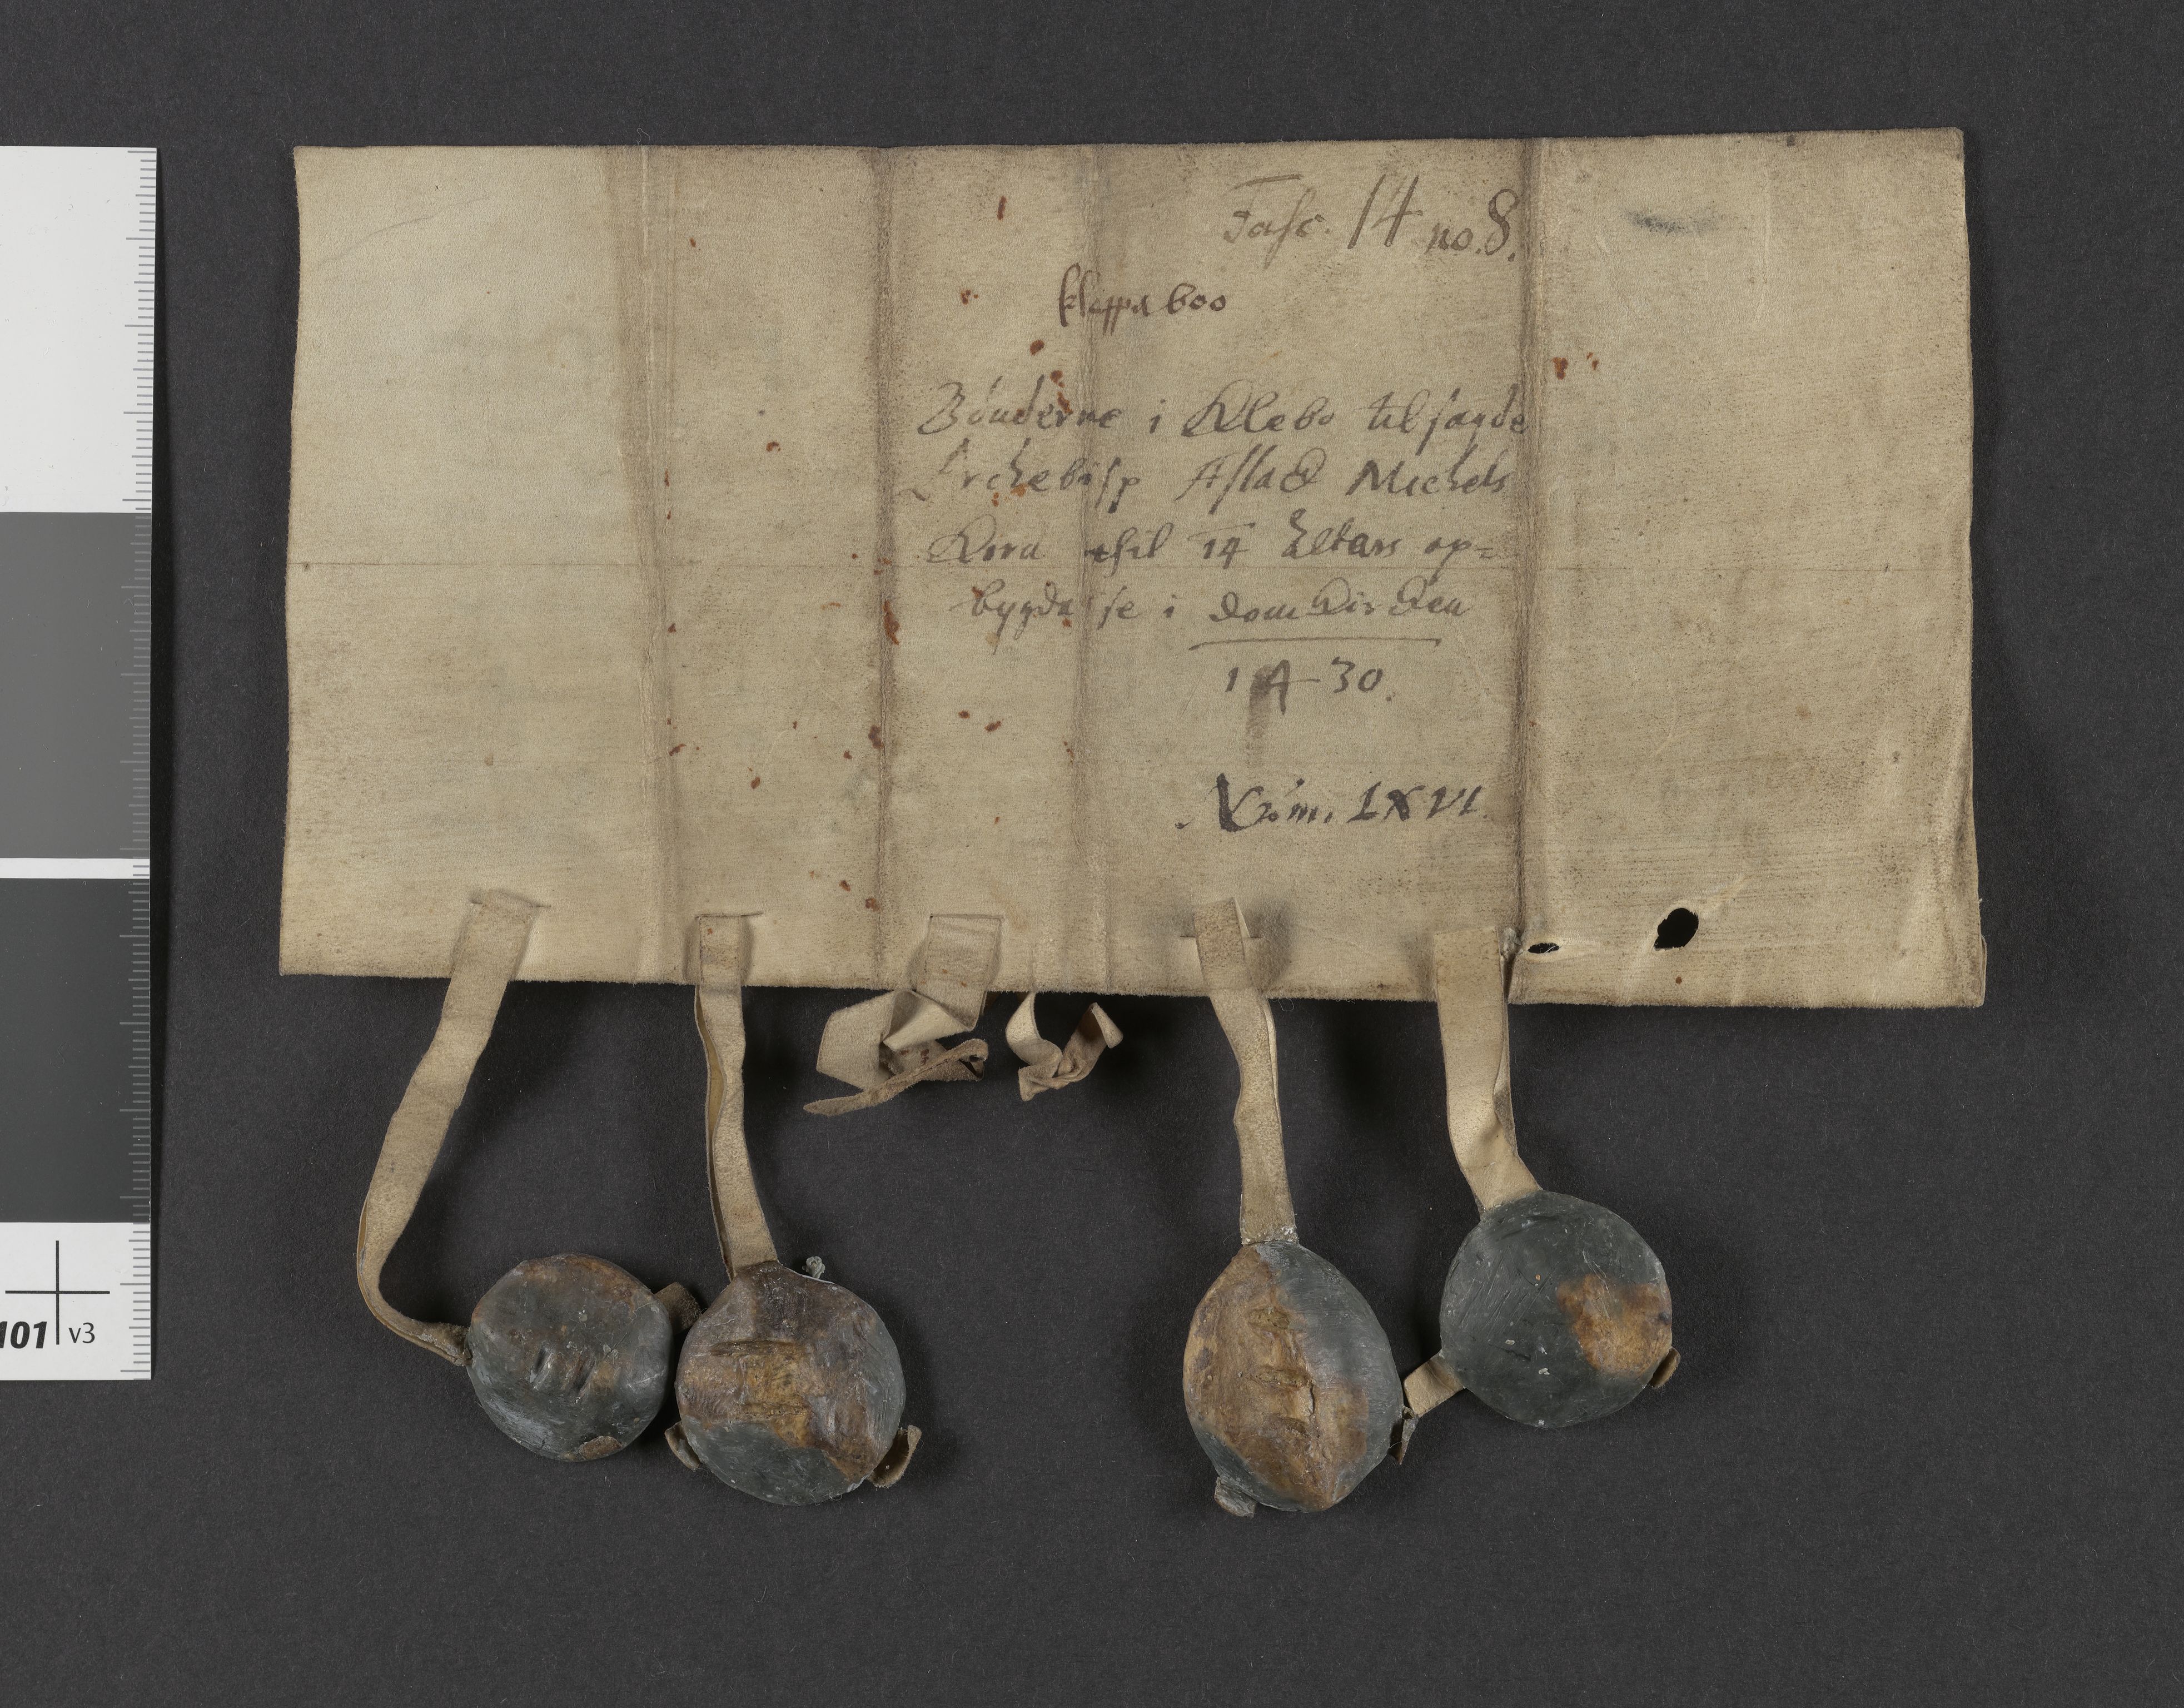 Fasc. 14 no. 8.
kleppa boo
Bönderne i Klebo tilsagde
Erchebisp Aslack Michels
Korn thil 14 Altars op=
bygdelse i Domkircken
1430.
Nöm. LXVI.
101 v3